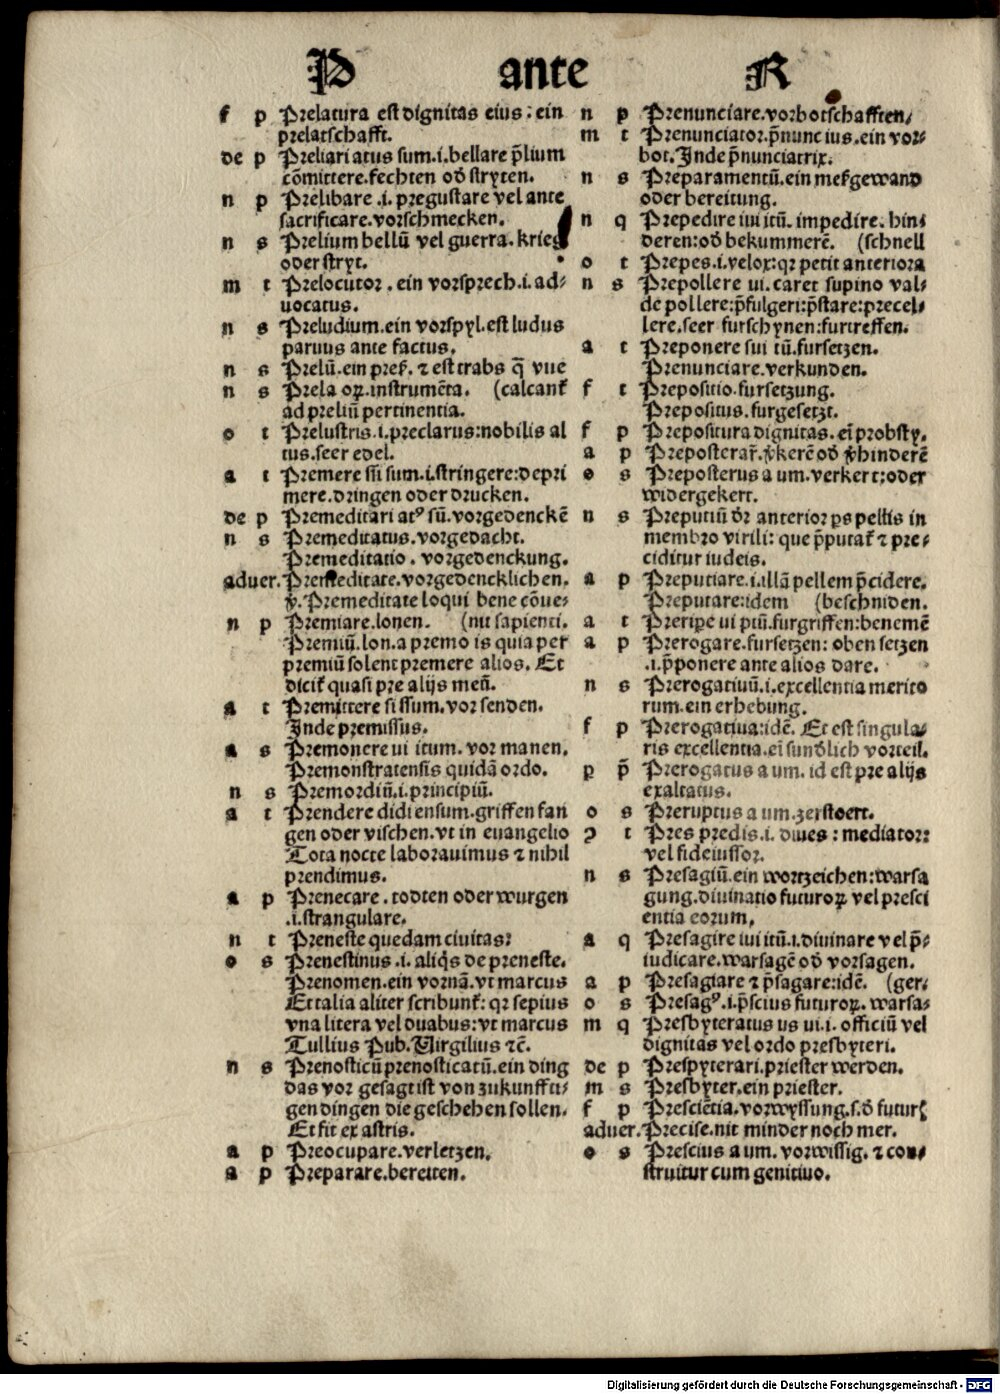 P ante R
f p Prelatura est dignitas eius: ein
prelatschafft.
de p Preliari atus sum.i.bellare p̄lium
cōmittere.fechten od̄ stryten.
n p Prelibare.i.pregustare vel ante
sacrificare.vorschmecken.
n s Prelium bellū vel guerra.krieg
oder stryt.
m t Prelocutor.ein vorsprech.i.ad-
uocatus.
n s Preludium.ein vorspyl.est ludus
paruus ante factus.
n s Prelū.ein preß.⁊ est trabs q̄ vue
n s Prela oꝝ.instrumēta. (calcanť
ad preliū pertinentia.
o t Prelustris.i.preclarus:nobilis al
tus.seer edel.
a t Premere ssi sum.i.stringere:depri
mere.dringen oder drucken.
de p Premeditari atꝰ sū.vorgedenckē
n s Premeditatus.vorgedacht.
Premeditatio.vorgedenckung.
aduer. Premeditate.vorgedencklichen.
ꝟ.Premeditate loqui bene cōue-
n p Premiare.lonen. (nit sapienti.
Premiū.lon.a premo is quia per
premiū solent premere alios. Et
dicit̄ quasi pre alijs meū.
a t Premittere si ssum.vor senden.
Inde premissus.
a s Premonere ui itum.vor manen.
Premonstratensis quidā ordo.
n s Premordiū.i.principiū.
a t Prendere didi ensum.griffen fan
gen oder vischen.vt in euangelio
Tota nocte laborauimus ⁊ nihil
prendimus.
a p Prenecare.todten oder wurgen
.i.strangulare.
n t Preneste quedam ciuitas:
o s Prenestinus.i.aliq̄s de preneste.
Prenomen.ein vornā.vt marcus
Et talia aliter scribunť: qꝛ sepius
vna litera vel duabus:vt marcus
Tullius Pub.Virgilius ⁊c̄.
n s Prenosticū prenosticatū.ein ding
das vor gesagt ist von zukunffti-
gen dingen die geschehen sollen.
Et fit ex astris.
a p Preocupare.verletzen.
a p Preparare.bereiten.
n p Prenunciare.vorbotschafften.
m t Prenunciator.p̄nuncius.ein vor-
bot.Inde p̄nunciatrix.
n s Preparamentū.ein meßgewand
oder bereitung.
n q Prepedire iui itū.impedire.hin-
deren:od̄ bekummerē. (schnell
o t Prepes.i.velox:qꝛ petit anteriora
n s Prepollere ui.caret supino val-
de pollere:p̄fulgeri:p̄stare:precel-
lere.seer furschynen:furtreffen.
a t Preponere sui tū.fursetzen.
Prenunciare.verkunden.
f t Prepositio.fursetzung.
Prepositus.furgesetzt.
f p Prepositura dignitas.eī probsty.
a p Preposterar̄.ꝟkerē od̄ ꝟhinderē
o s Preposterus a um.verkert:oder
widergekert.
n s Preputiū dr̄ anterior ps pellis in
membro virili: que p̄putať ⁊ pre-
ciditur iudeis.
a p Preputiare.i.illā pellem p̄cidere.
Preputare:idem (beschniden.
a t Preripe ui ptū.furgriffen:benemē
a p Prerogare.fursetzen: oben setzen
.i.p̄ponere ante alios dare.
n s Prerogatiuū.i.excellentia merito
rum.ein erhebung.
f p Prerogatiua:idē. Et est singula-
ris excellentia.eī sund̄lich vorteil.
p p̄ Prerogatus a um. id est pre alijs
exaltatus.
o s Preruptus a um.zerstoert.
ꝯ t Pres predis.i. diues: mediator:
vel fideiussor.
n s Presagiū.ein wortzeichen:warsa
gung.diuinatio futuroꝝ vel presci
entia eorum.
a q Presagire iui itū.i.diuinare vel p̄-
iudicare.warsagē od̄ vorsagen.
a p Presagiare ⁊ p̄sagare:idē. (ger.
o s Presagꝰ.i.p̄scius futuroꝝ.warsa-
m q Presbyteratus us ui.i. officiū vel
dignitas vel ordo presbyteri.
de p Prespyterari.priester werden.
m s Presbyter.ein priester.
f p Presciētia.vorwyssung.s.d̄ futurꝝ
aduer. Precise.nit minder noch mer.
o s Prescius a um.vorwissig.⁊ con-
struitur cum genitiuo.
Digitalisierung gefördert durch die Deutsche Forschungsgemeinschaft - DFG